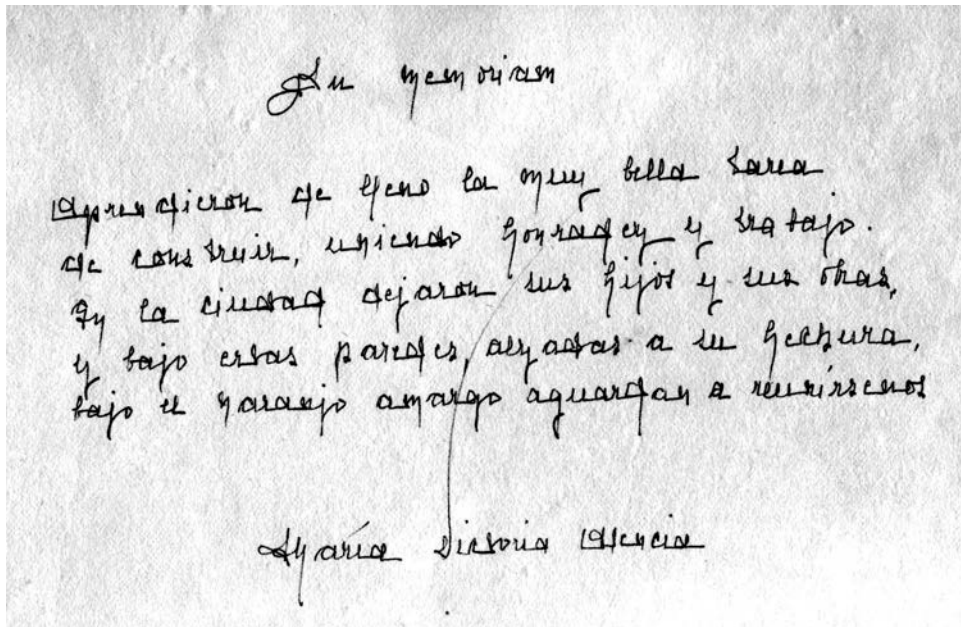 In memoriam
Aprendieron de lleno la muy bella tarea
de construir, uniendo honradez y trabajo.
En la ciudad dejaron sus hijos y sus obras,
y bajo estas paredes, alzadas a su hechura,
bajo el naranjo amargo aguardan a reunírsenos
María Victoria Atencia